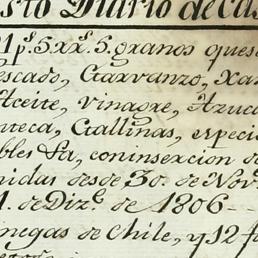 sto Diario de Cas
21 p.s 5 xx.s 5. granos que se
escado, Garvanzo, xar
Aceite, vinagre, Azuca
nteca, Gallinas, especi
bles &a, con insercion de
nidas desde 30. de Nov.e
1. de Diz.e de 1806-
negas de Chile, y 12 f